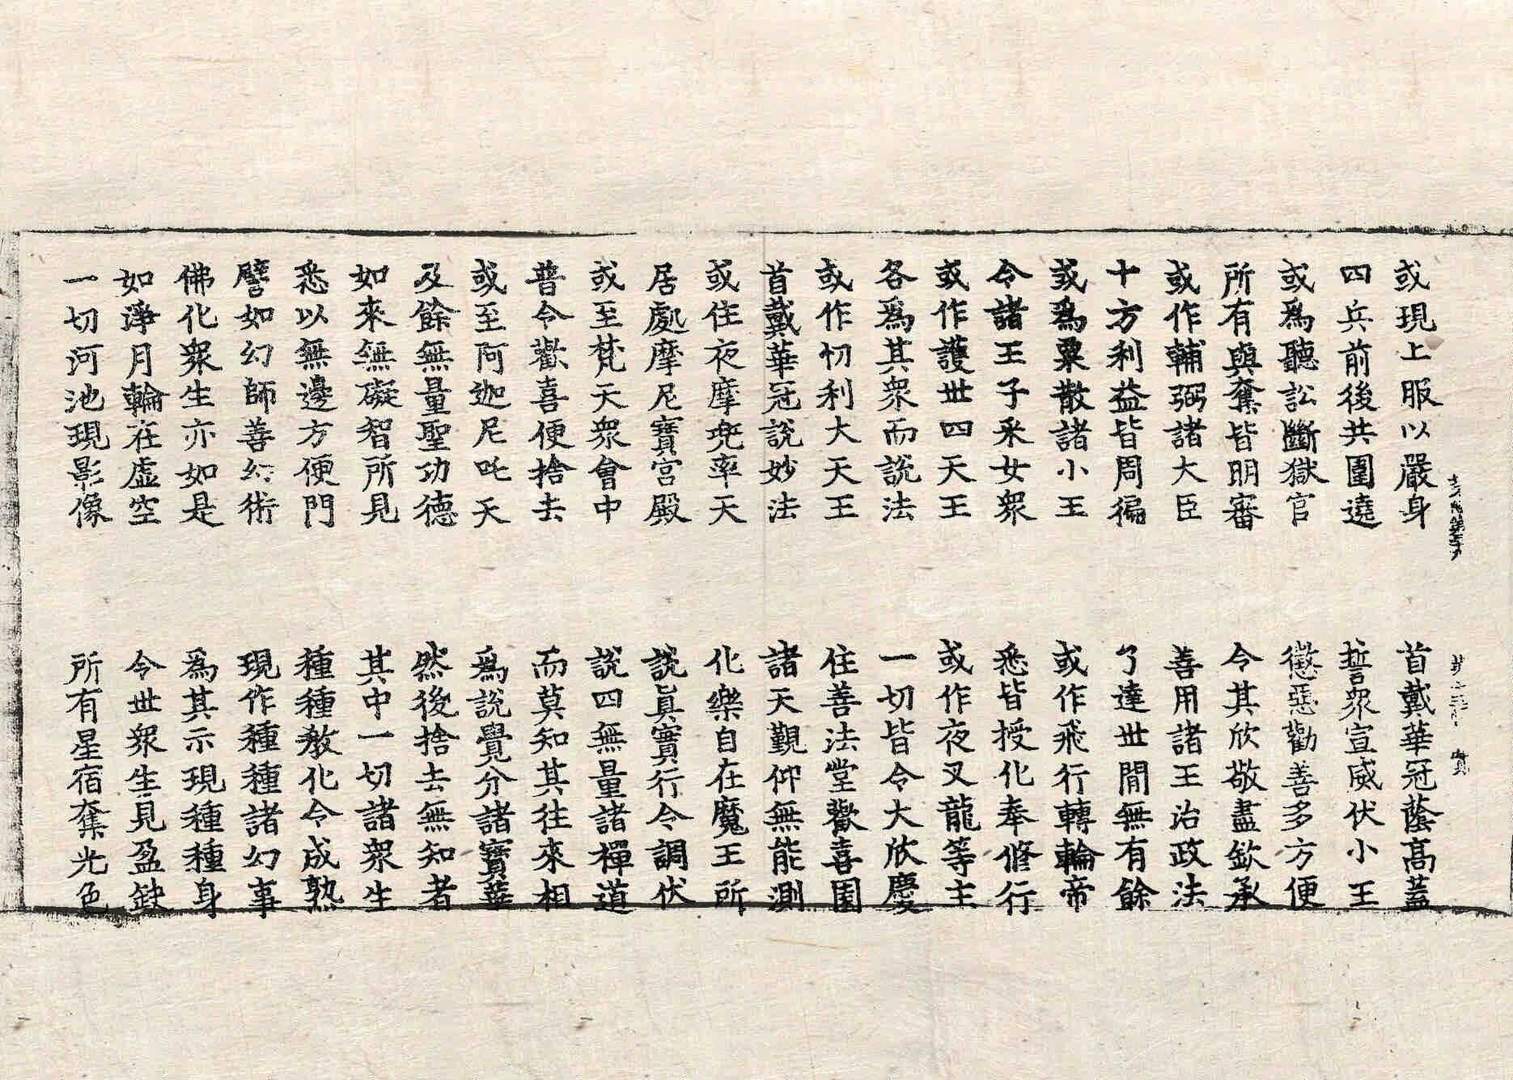 或現上服以嚴身　首戴華冠蔭高蓋
四兵前後共圍遶　誓眾宣威伏小王
或爲聽訟斷獄官　懲惡勸善多方便
所有與奪皆明審　令其欣敬盡欽承
或作輔弼諸大臣　善用諸王治政法
十方利益皆周徧　了達世間無有餘
或爲粟散諸小王　或作飛行轉輪帝
令諸王子采女眾　悉皆授化奉修行
或作護世四天王　或作夜叉龍等主
各爲其眾而說法　一切皆令大欣慶
或作忉利大天王　住善法堂歡喜園
首戴華冠說妙法　諸天覲仰無能測
或住夜摩兜率天　化樂自在魔王所
居處摩尼寶宮殿　說眞實行令調伏
或至梵天眾會中　說四無量諸禪道
普令歡喜便捨去　而莫知其往來相
或至阿迦尼吒天　爲說覺分諸寶華
及餘無量聖功德　然後捨去無知者
如來無礙智所見　其中一切諸眾生
悉以無邊方便門　種種敎化令成熟
譬如幻師善幻術　現作種種諸幻事
佛化眾生亦如是　爲其示現種種身
如淨月輪在虛空　令世眾生見盈缺
一切河池現影像　所有星宿奪光色